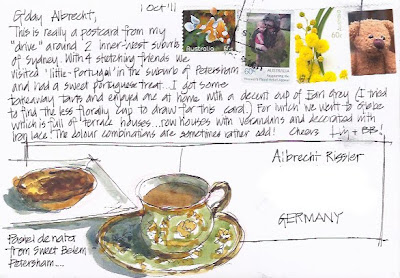 1 Oct '11
G'day Albrecht,
This is really a postcard from my
"drive" around 2 inner-west suburbs
of Sydney. With 4 sketching friends we
visited "little-Portugal" in the suburb of Petersham
and had a sweet portuguese treat. I got some
takeaway tarts and enjoyed one at home with a decent cup of Earl Grey (I tried
to find the less florally cup to draw for this card.) For lunch we went to Glebe
which is full of terrace houses... row houses with verandahs and decorated with
iron lace! The colour combinations are sometimes rather odd! Cheers Liz + BB!
Australia
60c
AUSTRALIA
60c
AUSTRALIA
60c
Albrecht Rissler
GERMANY
Pastel de nata
from Sweet Belem
Petersham....